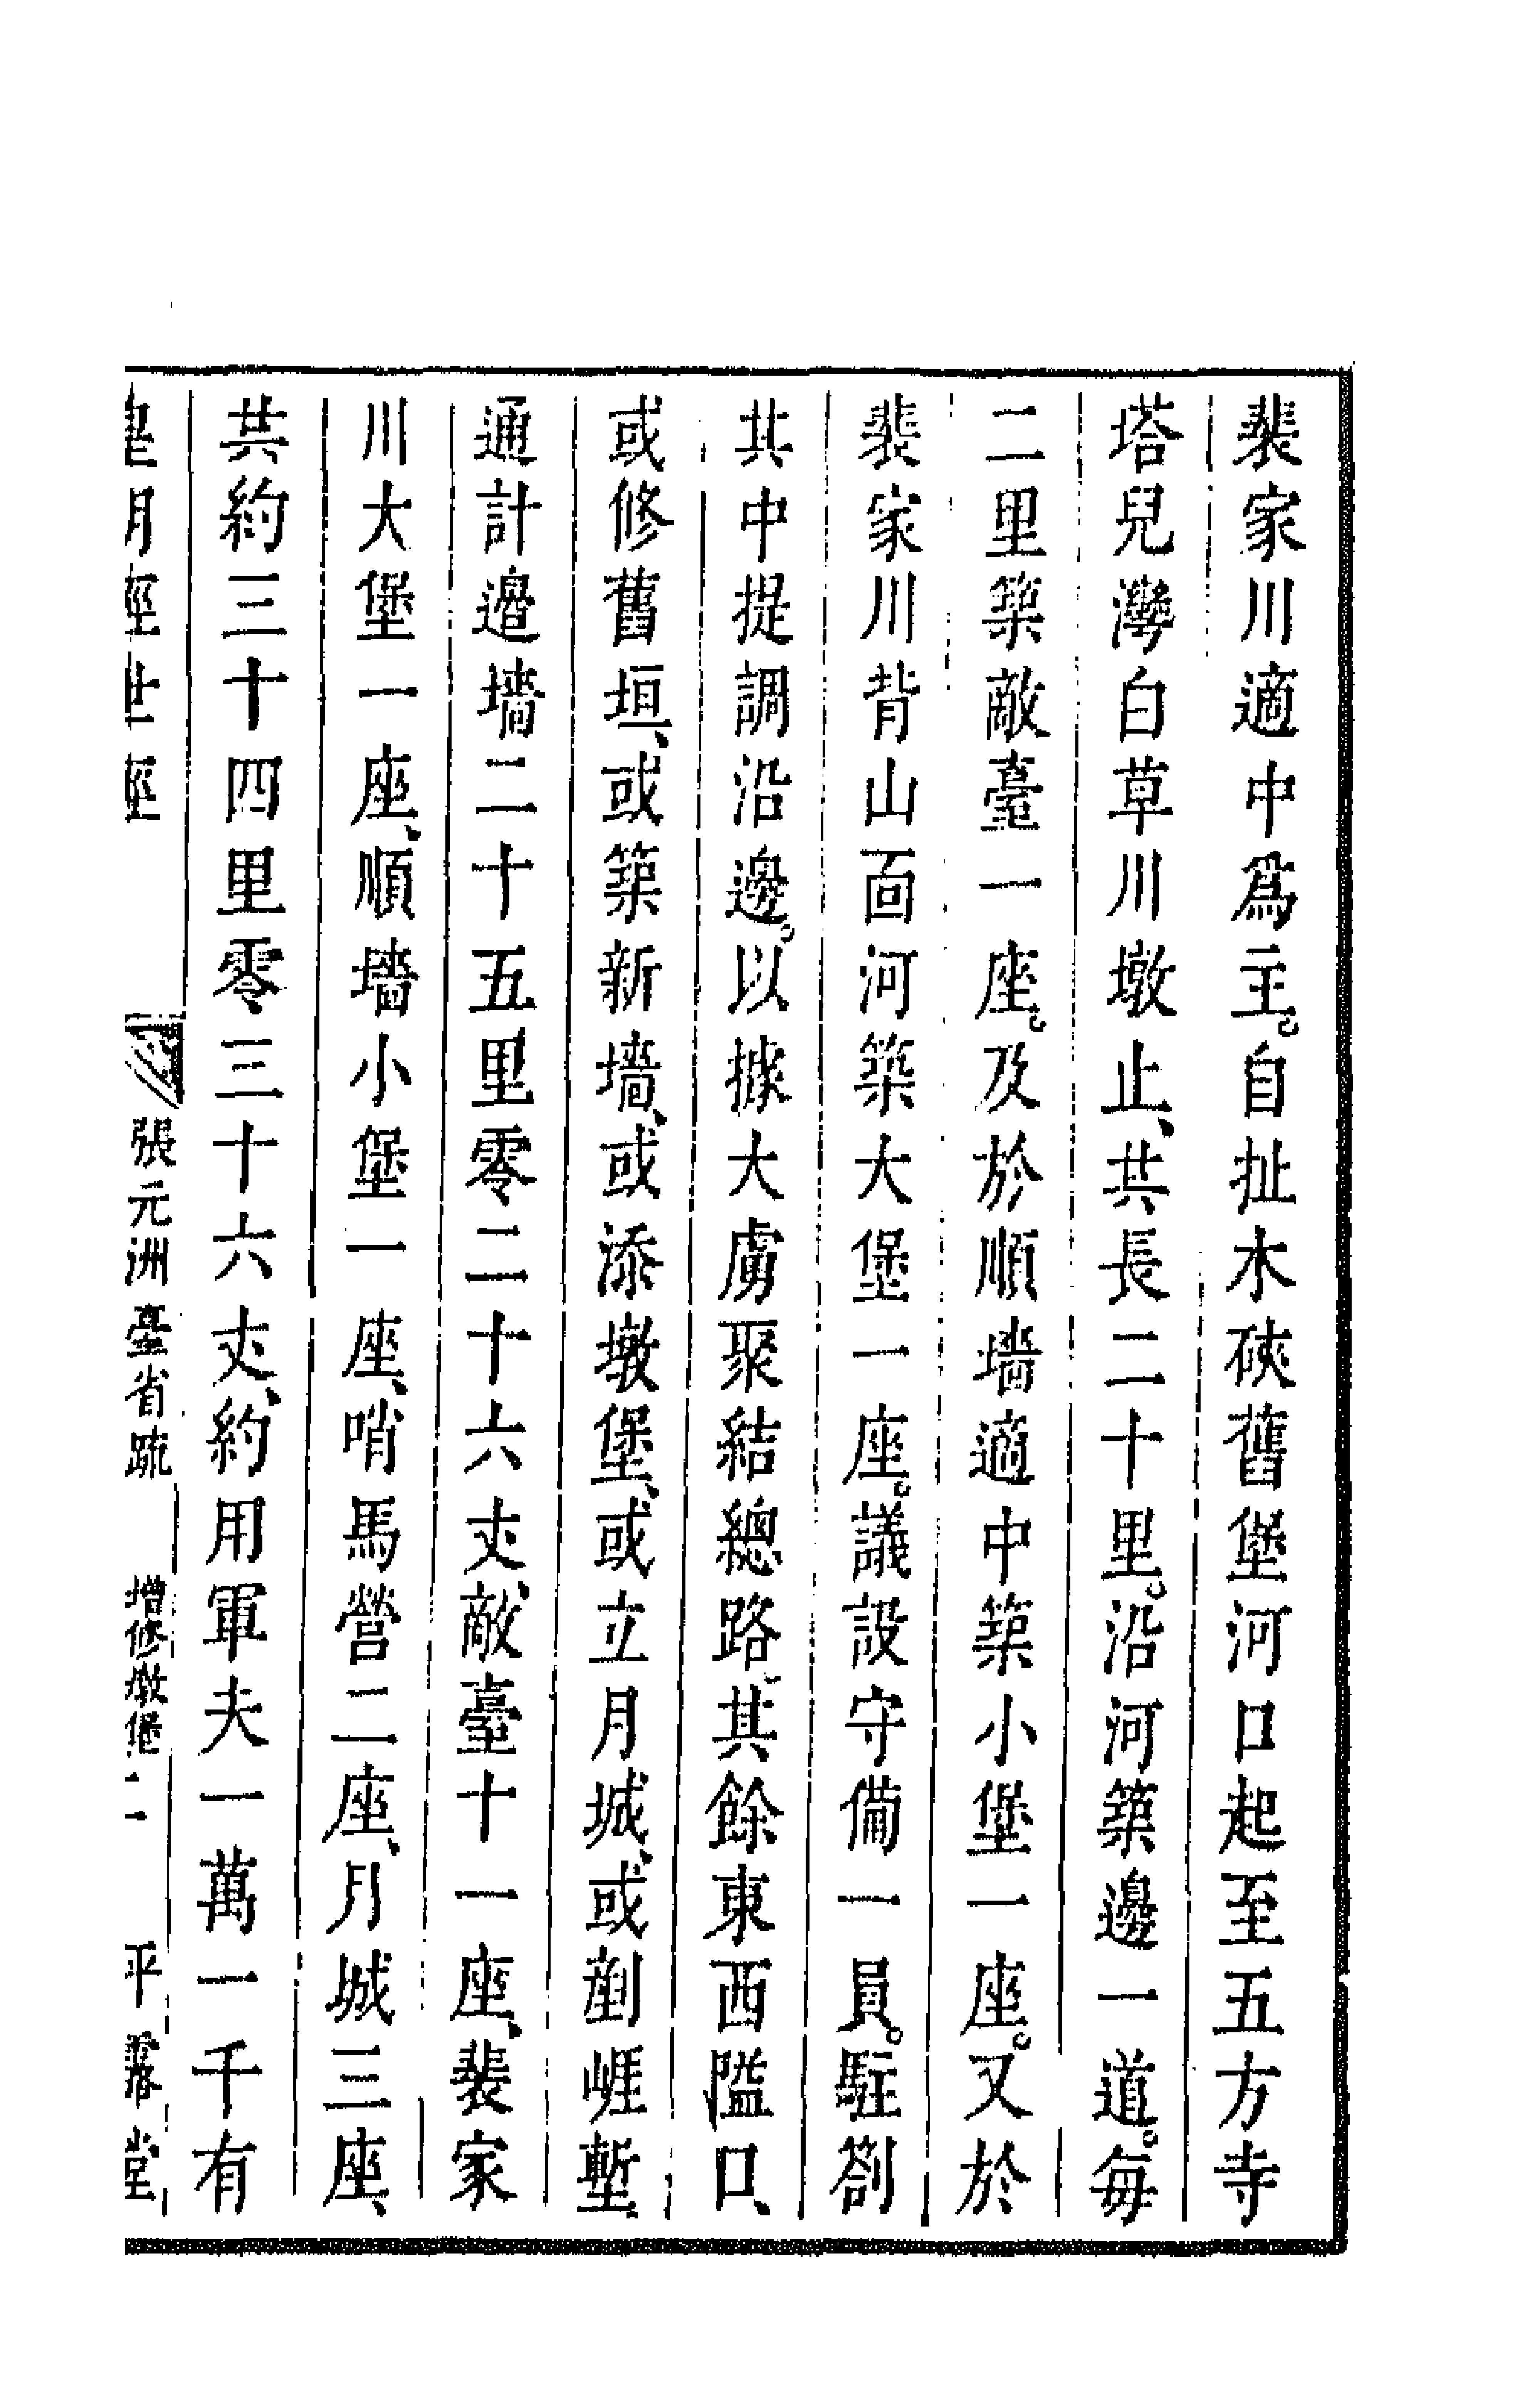 裴家川適中爲主。自扯木硤舊堡河口起至五方寺
塔兒灣白草川墩止、共長二十里。沿河築邊一道。每
二里築敵臺一座。及於順墻適中築小堡一座。又於
裴家川背山面河築大堡一座。議設守備一員。駐劄
其中提調沿邊。以據大虜聚結總路、其餘東西隘口、
或修舊垣、或築新墻、或添墩堡、或立月城、或剷崕塹、
通計邊墻二十五里零二十六丈、敵臺十一座、裴家
川大堡一座、順墻小堡一座、哨馬營二座、月城三座、
共約三十四里零三十六丈、約用軍夫一萬一千有
皇明經世經 張元洲臺省疏 增修墩堡 二 平露堂